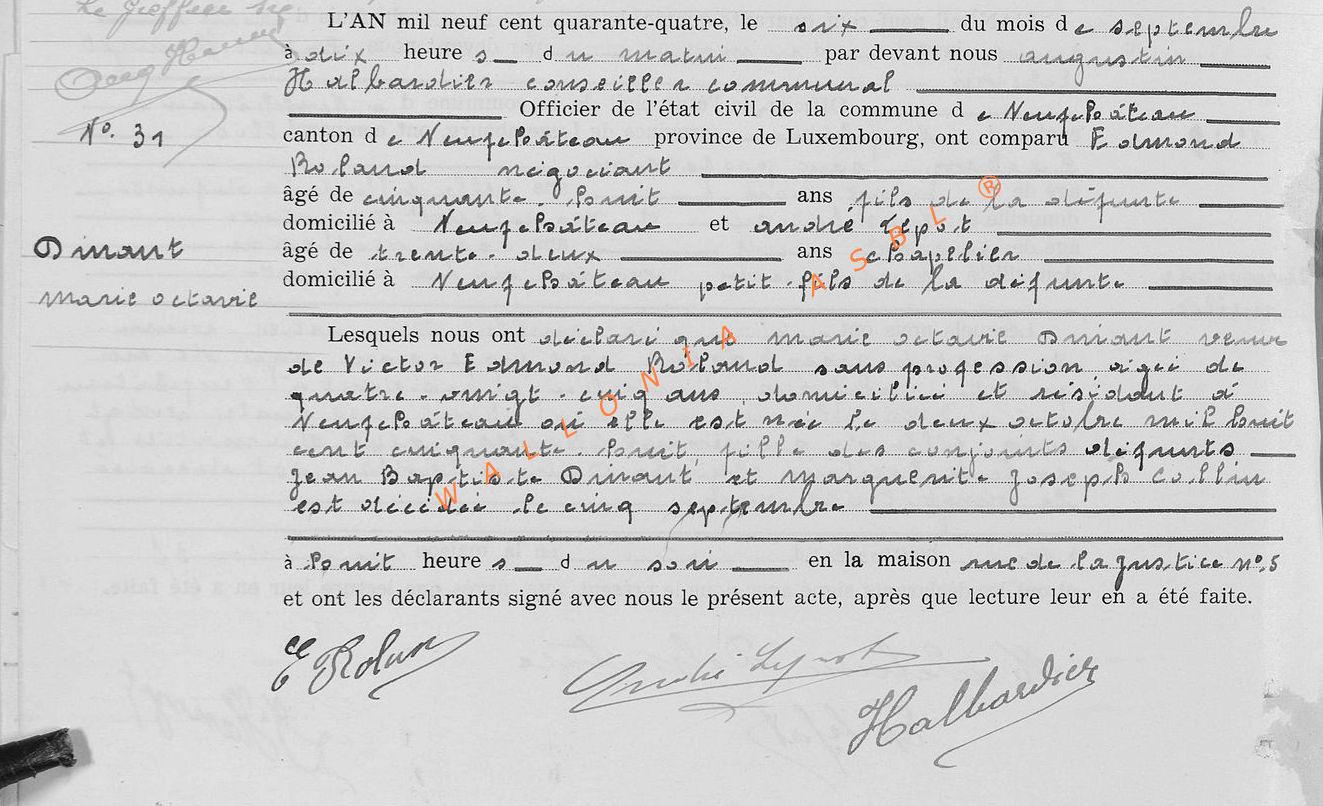 Le greffier
N°. 31
Dinant
marie octavie
L'AN mil neuf cent quarante-quatre, le six du mois de septembre
à dix heures du matin par devant nous augustin
Halbardier conseiller communal
Officier de l'état civil de la commune de Neufchâteau
canton de Neufchâteau province de Luxembourg, ont comparu Edmond
Roland négociant
âgé de cinquante-huit ans fils de la défunte
domicilié à Neufchâteau et andré Lepot
âgé de trente-deux ans chapelier
domicilié à Neufchâteau petit-fils de la défunte
Lesquels nous ont déclaré que marie octavie Dinant veuve
de Victor Edmond Roland sans profession agée de
quatre-vingt-cinq ans, domiciliée et résidant à
Neufchâteau où elle est née le deux octobre mil huit
cent cinquante-huit, fille des conjoints défunts
Jean Baptiste Dinant et marguerite Joseph Collin
est décédée le cinq septembre
à huit heures du soir en la maison rue de la justice n°.5
et ont les déclarants signé avec nous le présent acte, après que lecture leur en a été faite.
E Rolan
André Lepot
Halbardier
WALLONIA ASBL ®